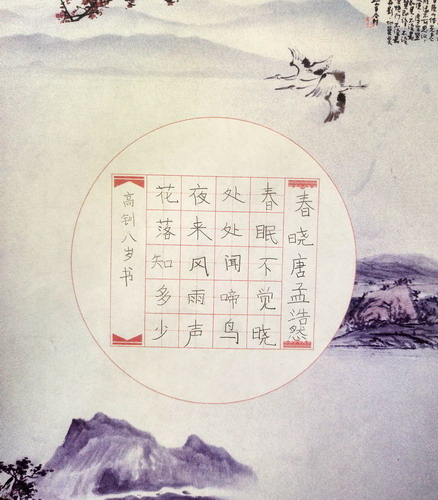 春晓唐孟浩然
春眠不觉晓
处处闻啼鸟
夜来风雨声
花落知多少
高钊八岁书